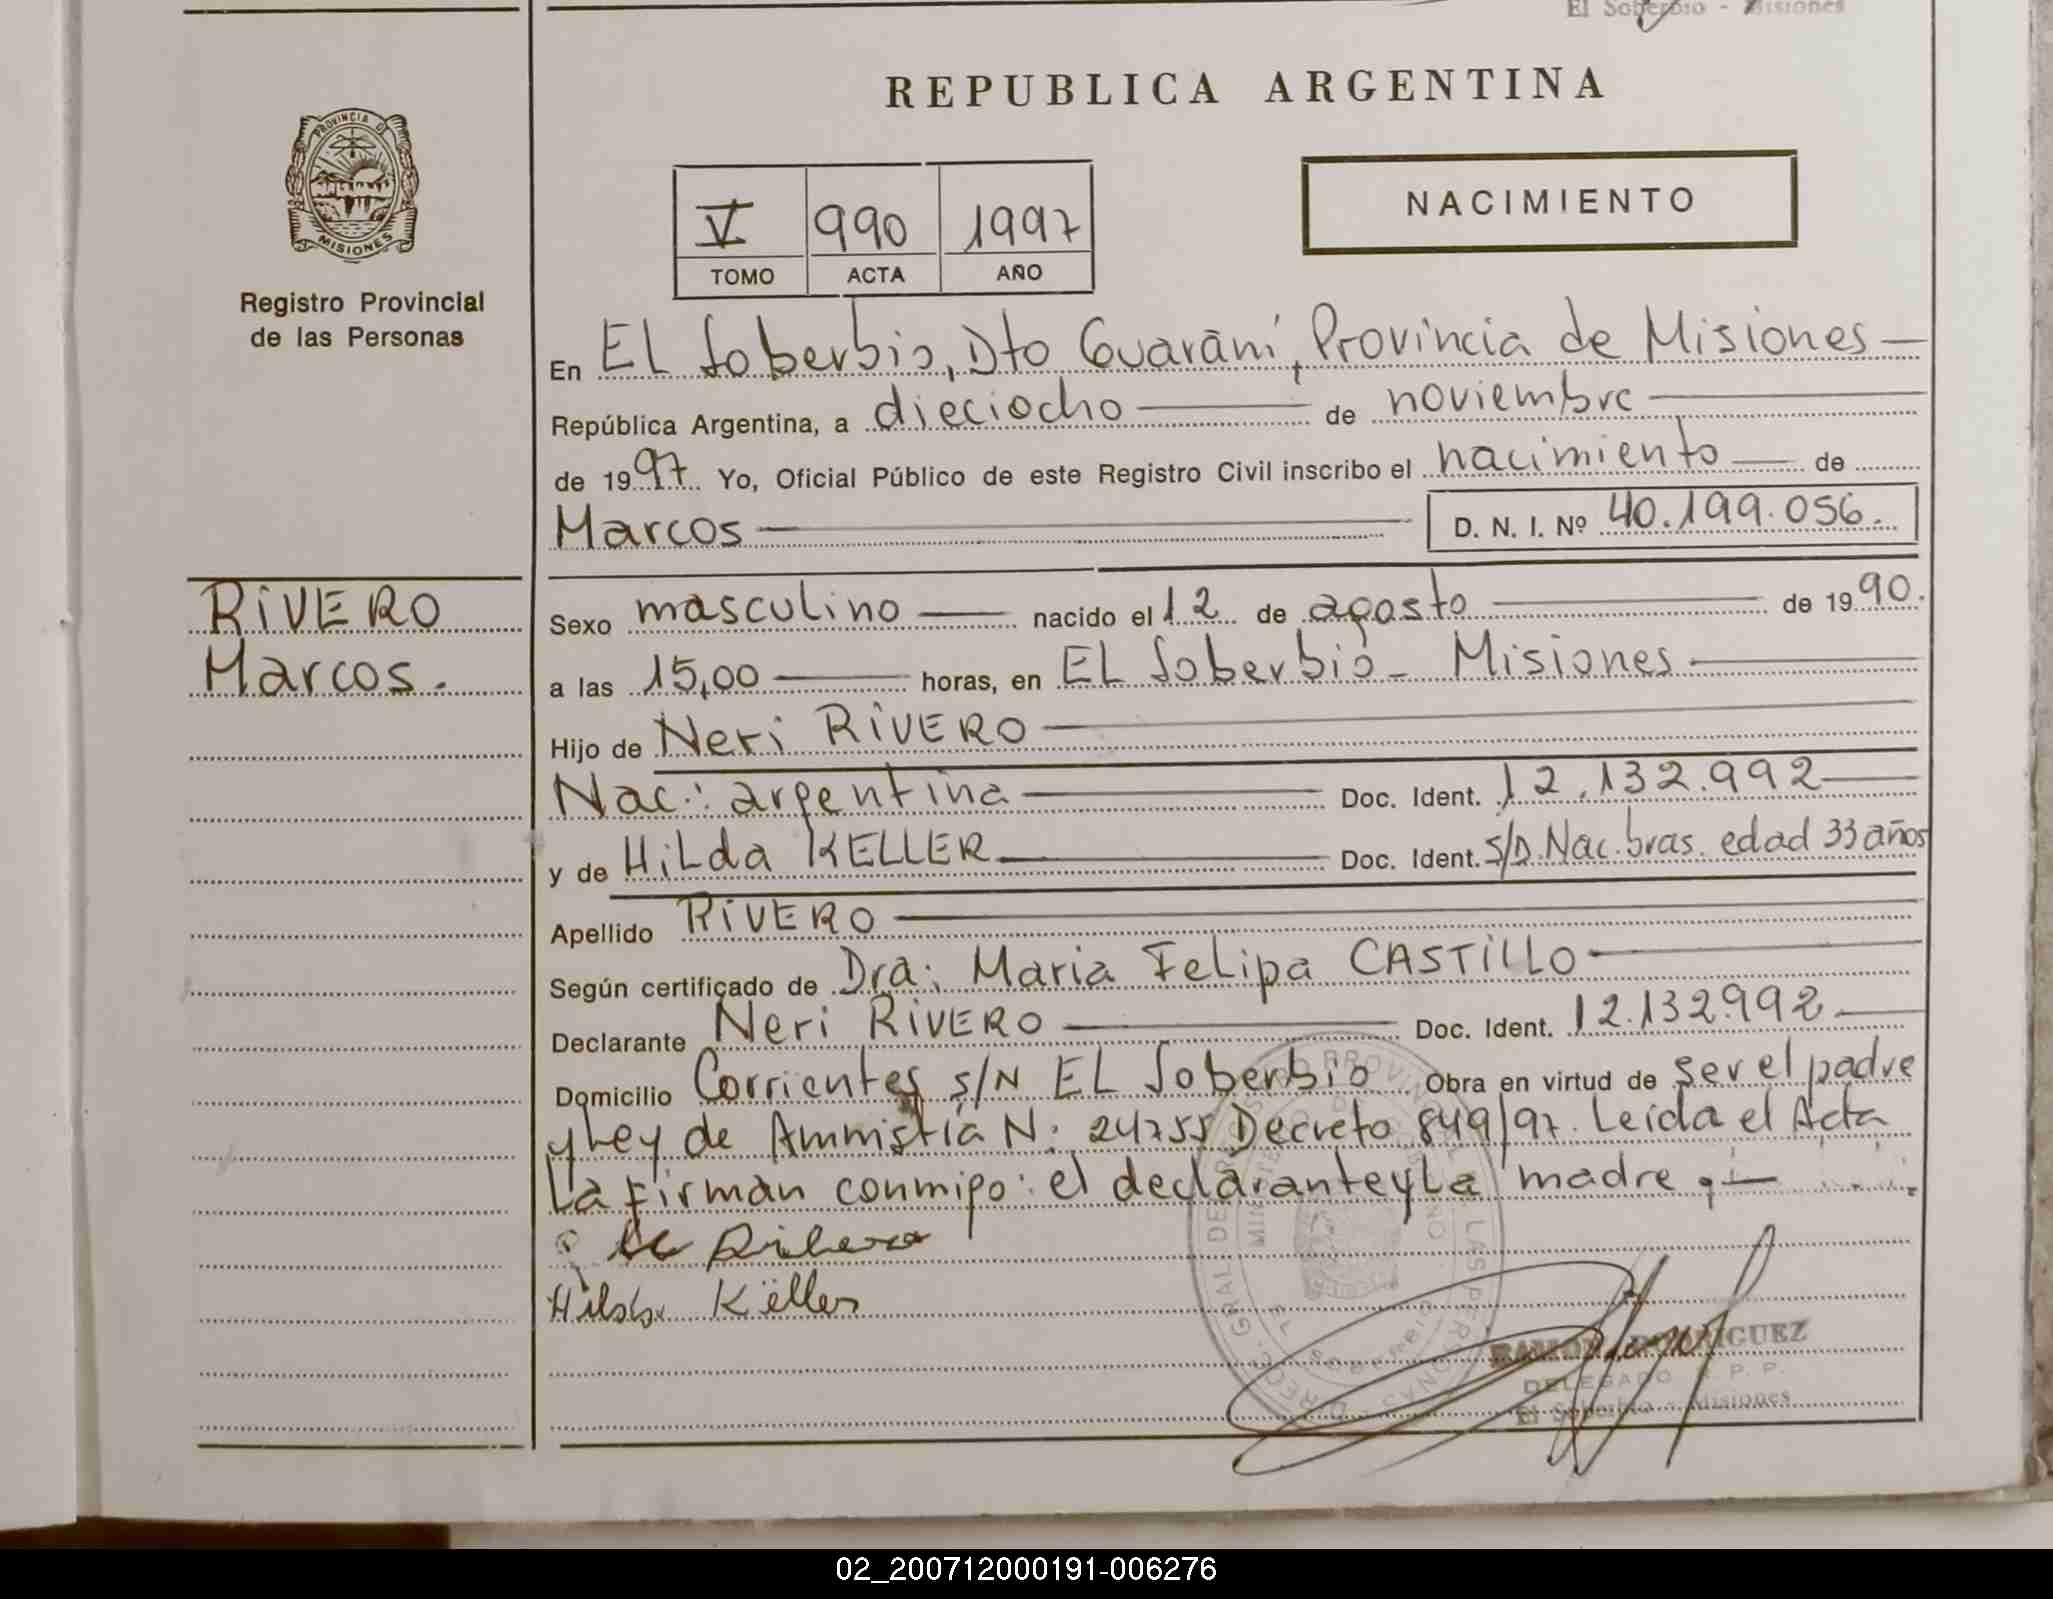 El Soberbio - Misiones
REPUBLICA ARGENTINA
PROVINCIA DE
MISIONES
Registro Provincial
de las Personas
V 990 1997
TOMO ACTA AÑO
NACIMIENTO
En EL Soberbio, Dto Guaraní, Provincia de Misiones
República Argentina, a dieciocho de noviembre
de 1997 Yo, Oficial Público de este Registro Civil inscribo el nacimiento de
Marcos D. N. I. Nº 40.199.056.
RiVERO
Marcos.
Sexo masculino nacido el 12 de agosto de 1990.
a las 15,00 horas, en EL Soberbio - Misiones
Hijo de Neri RiVERO
Nac.: argentina Doc. Ident. 12.132.992
y de HiLda KELLER Doc. Ident. S/D. Nac. bras. edad 33 años
Apellido RiVERO
Según certificado de Dra: Maria Felipa CASTiLLO
Declarante Neri RiVERO Doc. Ident. 12.132.992
Domicilio Corrientes s/N EL Soberbio Obra en virtud de ser el padre
y Ley de Amnistía N: 24755 Decreto 849/97. Leída el Acta
La firman conmigo: el declarante y La madre.-
Hilda Keller
RAMON RODRIGUEZ
DELEGADO R. P. P.
El Soberbio - Misiones
02_200712000191-006276